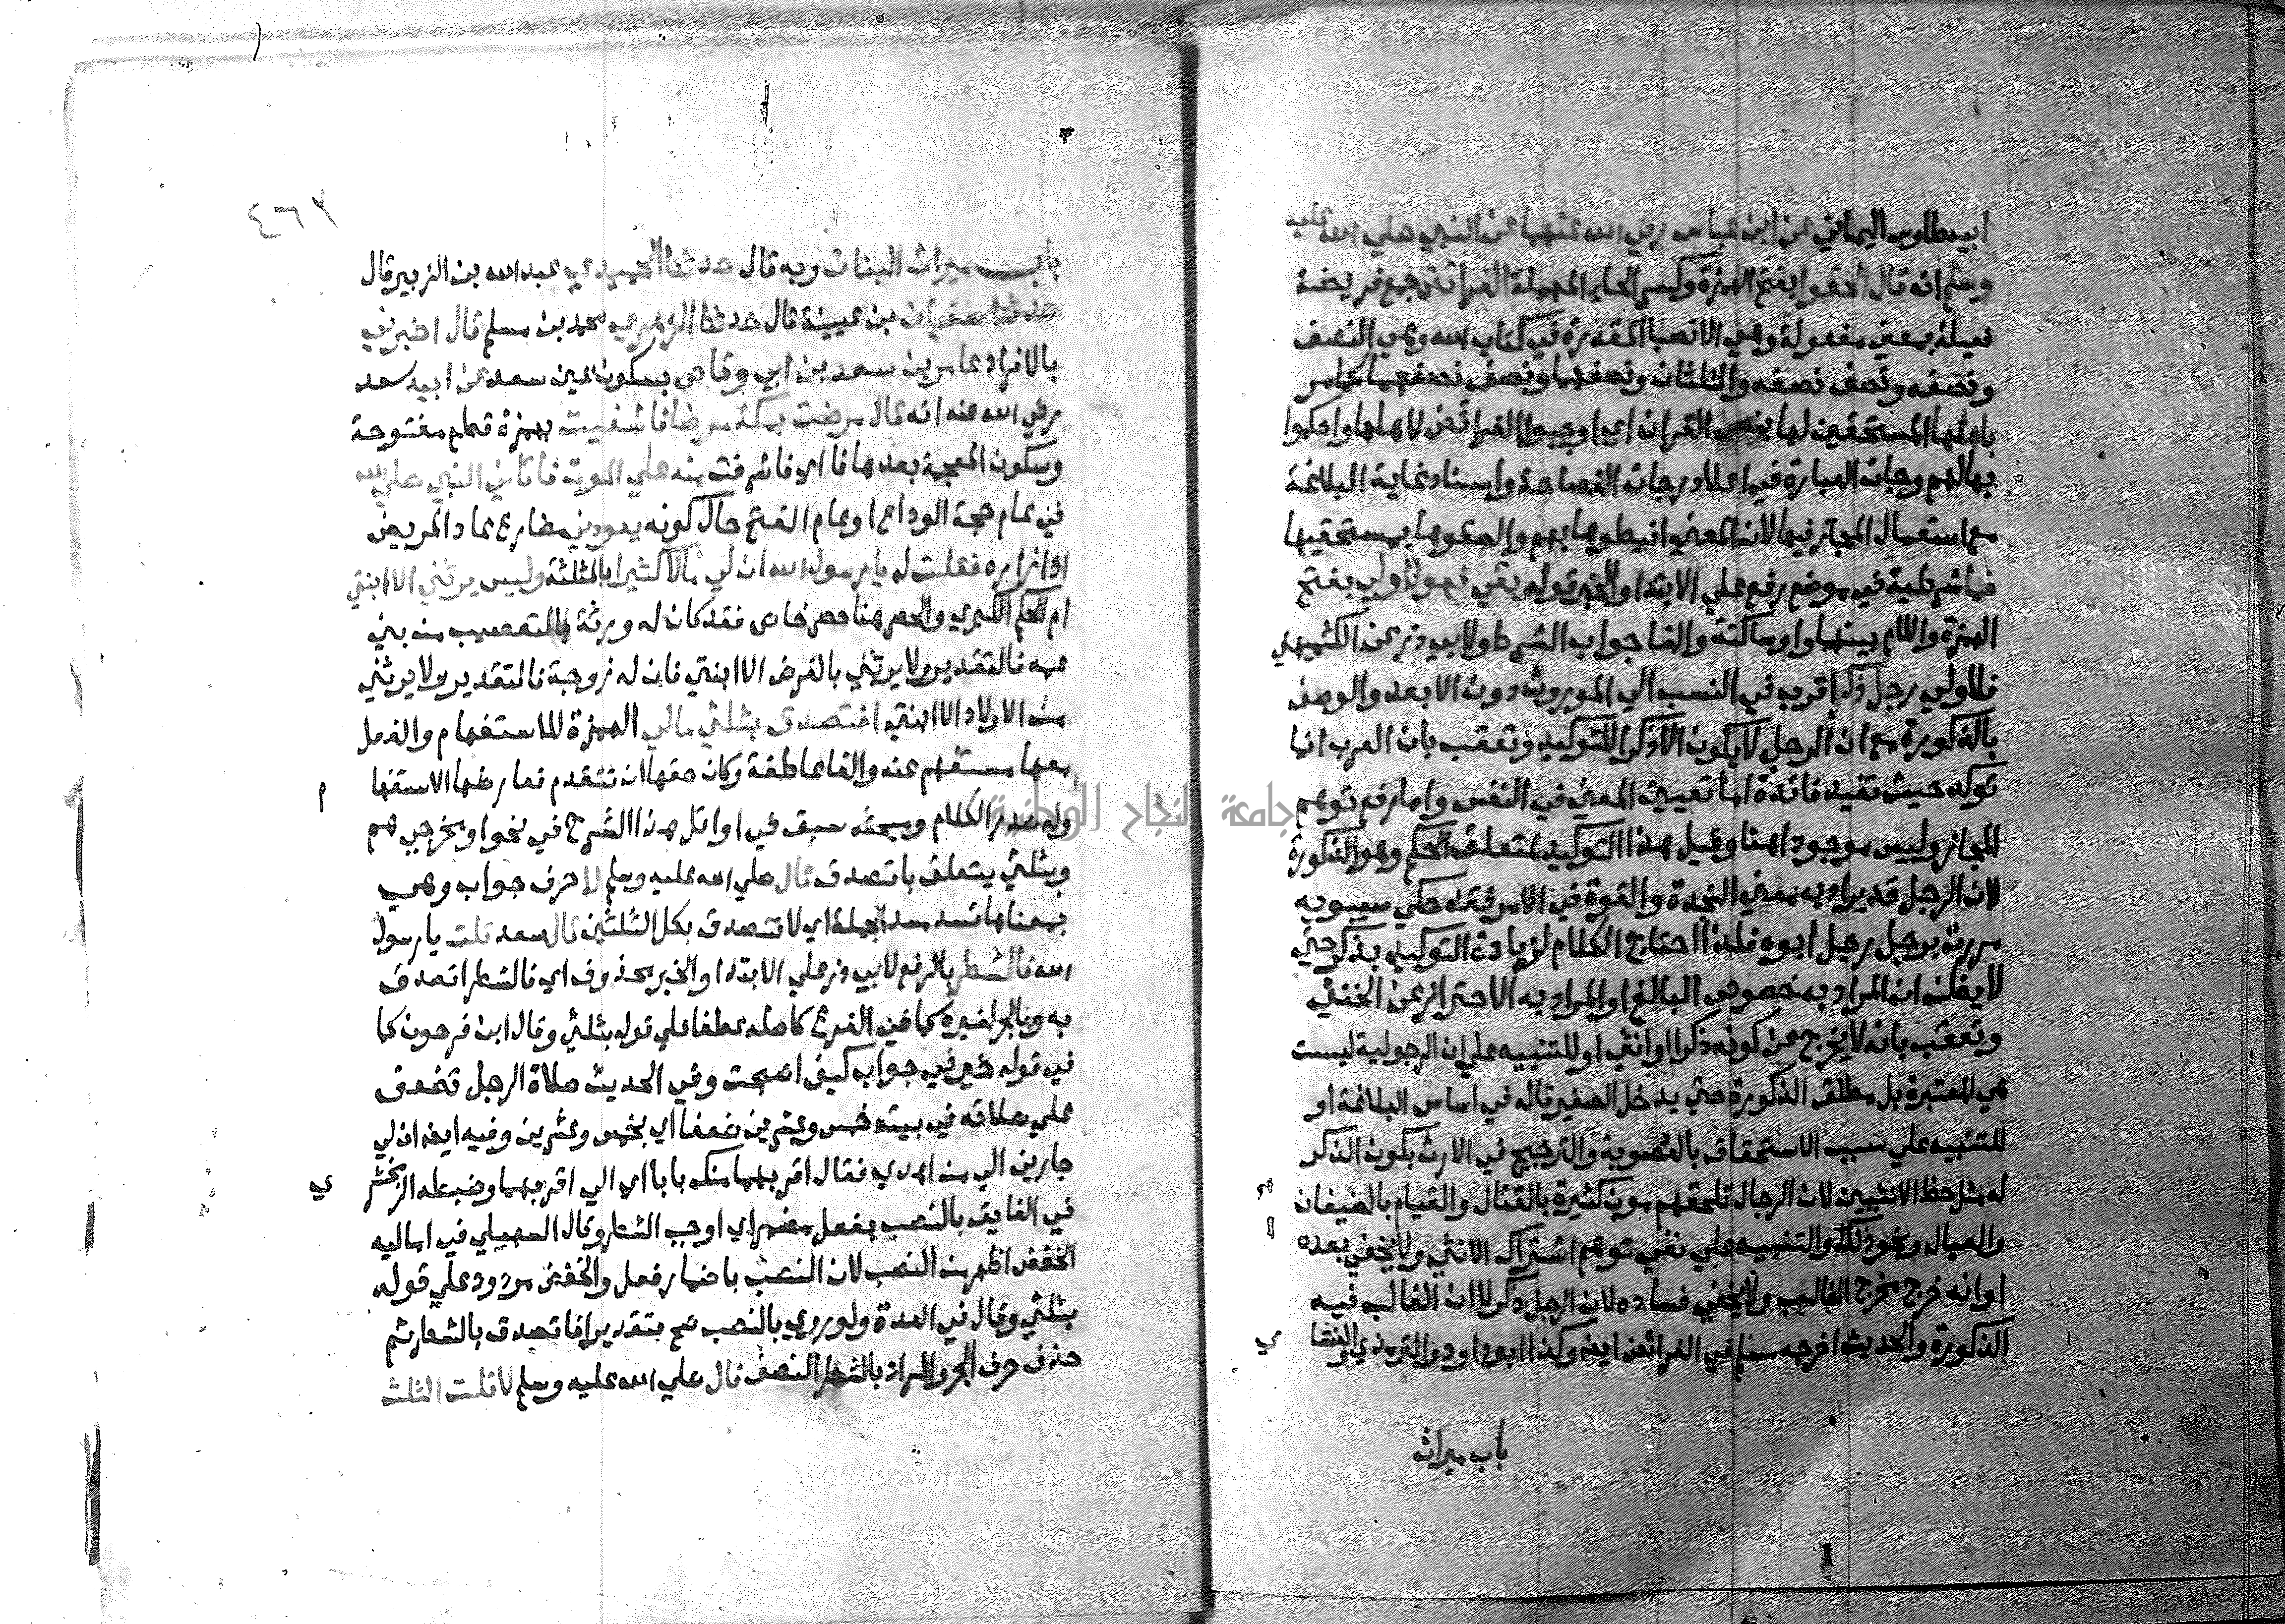 ابيه طاوس اليماني عن ابن عباس رضي الله عنهما عن النبي صلي الله عليه
وسلم انه قال الحقوا بفتح الهمزة وكسر الحاء المهملة الفرائض جمع فريضة
فعيلة بمعني مفعولة وهي الانصبا المقدرة في كتاب الله وهي النصف
ونصفه ونصف نصفه والثلثان ونصفهما ونصف نصفهما كما مر
باهلها المستحقين لها بنص القران اي اوجبوا الفرائض لاهلها واحكموا
بها لهم وجات العبارة في اعلا درجات الفصاحة واسنا وغاية البلاغة
مع استعمال المجاز فيها لان المعني انيطوها بهم والصقوها بمستحقيها
فما شرطية في موضع رفع علي الابتدا والخبر قوله بقي فهو لاولي بفتح
الهمزة واللام بينهما واو ساكنة والفا جواب الشرط ولابي ذر عن الكشميهني
فلاولي رجل ذكر اقرب في النسب الي الموروث دون الابعد والوصف
بالذكورة مع ان الرجل لا يكون الا ذكرا للتوكيد وتعقب بان العرب انما
توكد حيث تفيد فائدة اما تعيين المعني في النفس واما رفع توهم
المجاز وليس موجودا هنا وقيل هذا التوكيد لمتعلق الحكم وهو الذكورة
لان الرجل قد يراد به معني النجدة والقوة في الامر فقد حكي سيبويه
مررت برجل رجل ابوه فلهذا احتاج الكلام لزيادة التوكيد بذكر حتي
لا يظن ان المراد به خصوص البالغ او المراد به الاحتراز عن الخنثي
وتعقب بانه لا يخرج عن كونه ذكرا او انثي او للتنبيه علي ان الرجولية ليست
هي المعتبرة بل مطلق الذكورة حتي يدخل الصغير قاله في اساس البلاغة او
للتنبيه علي سبب الاستحقاق بالعصوبة والترجيح في الارث بكون الذكر
له مثل حظ الانثيين لان الرجال تلحقهم مون كثيرة بالقتال والقيام بالضيفان
والعيال ونحو ذلك والتنبيه علي نفي توهم اشتراك الانثي ولا يخفي بعده
او انه خرج مخرج الغالب ولا يخفي فساده لان الرجل ذكر لا ان الغالب فيه
الذكورة والحديث اخرجه مسلم في الفرائض ايض وكذا ابو داود والترمذي والنسا
ي
باب ميراث
٤٦٢
باب ميراث البنات وبه قال حدثنا الحميدي عبد الله بن الزبير قال
حدثنا سفيان بن عيينة قال حدثنا الزهري محمد بن مسلم قال اخبرني
بالافراد عامر بن سعد بن ابي وقاص بسكون عين سعد عن ابيه سعد
رضي الله عنه انه قال مرضت بمكة مرضا فاشفيت بهمزة قطع مفتوحة
وسكون المعجمة بعدها فا اي فاشرفت منه علي الموت فاتاني النبي صلي الله
في عام حجة الوداع او عام الفتح حال كونه يعودني مضارع عاد المريض
اذا زاره فقلت له يا رسول الله ان لي مالا كثيرا بالمثلثة وليس يرثني الا ابنتي
ام الحكم الكبري والحصر هنا حصر خاص فقد كان له ورثة بالتعصيب من بني
عمه فالتقدير ولا يرثني بالفرض الا ابنتي فان له زوجة فالتقدير ولا يرثني
من الاولاد الا ابنتي افتصدق بثلثي مالي الهمزة للاستفهام والفعل
معها مستفهم عنه والفا عاطفة وكان حقها ان تتقدم فعارضها الاستفها
م
وله صدر الكلام وبحثه سبق في اوائل هذا الشرح في نحو او مخرجي هم
وبثلثي يتعلق باتصدق قال صلي الله عليه وسلم لا حرف جواب وهي
بمعناها تسد مسد الجملة اي لا تتصدق بكل الثلثين قال سعد قلت يا رسول
الله فالشطر بالرفع لابي ذر علي الابتدا والخبر محذوف اي فالشطر اتصدق
به وبالجر لغيره كما في الفرع كاصله عطفا علي قوله بثلثي وقال ابن فرحون كما
في قوله خير في جواب كيف اصبحت وفي الحديث صلاة الرجل تضعف
علي صلاته في بيته خمس وعشرين ضعفا اي بخمس وعشرين وفيه ايض ان لي
جارين الي من اهدي فقال اقربهما منك بابا اي الي اقربهما وضبطه الزمخشر
ي
في الفايق بالنصب بفعل مضمر اي اوجب الشطر وقال السهيلي في اماليه
الخفض اظهر من النصب لان النصب باضمار فعل والخفض مردود علي قوله
بثلثي وقال في العدة ولو روي بالنصب صح بتقدير افاتصدق بالشطر ثم
حذف حرف الجر والمراد بالشطر النصف قال صلي الله عليه وسلم لا قلت الثلث
جامعة النجاح الوطنية